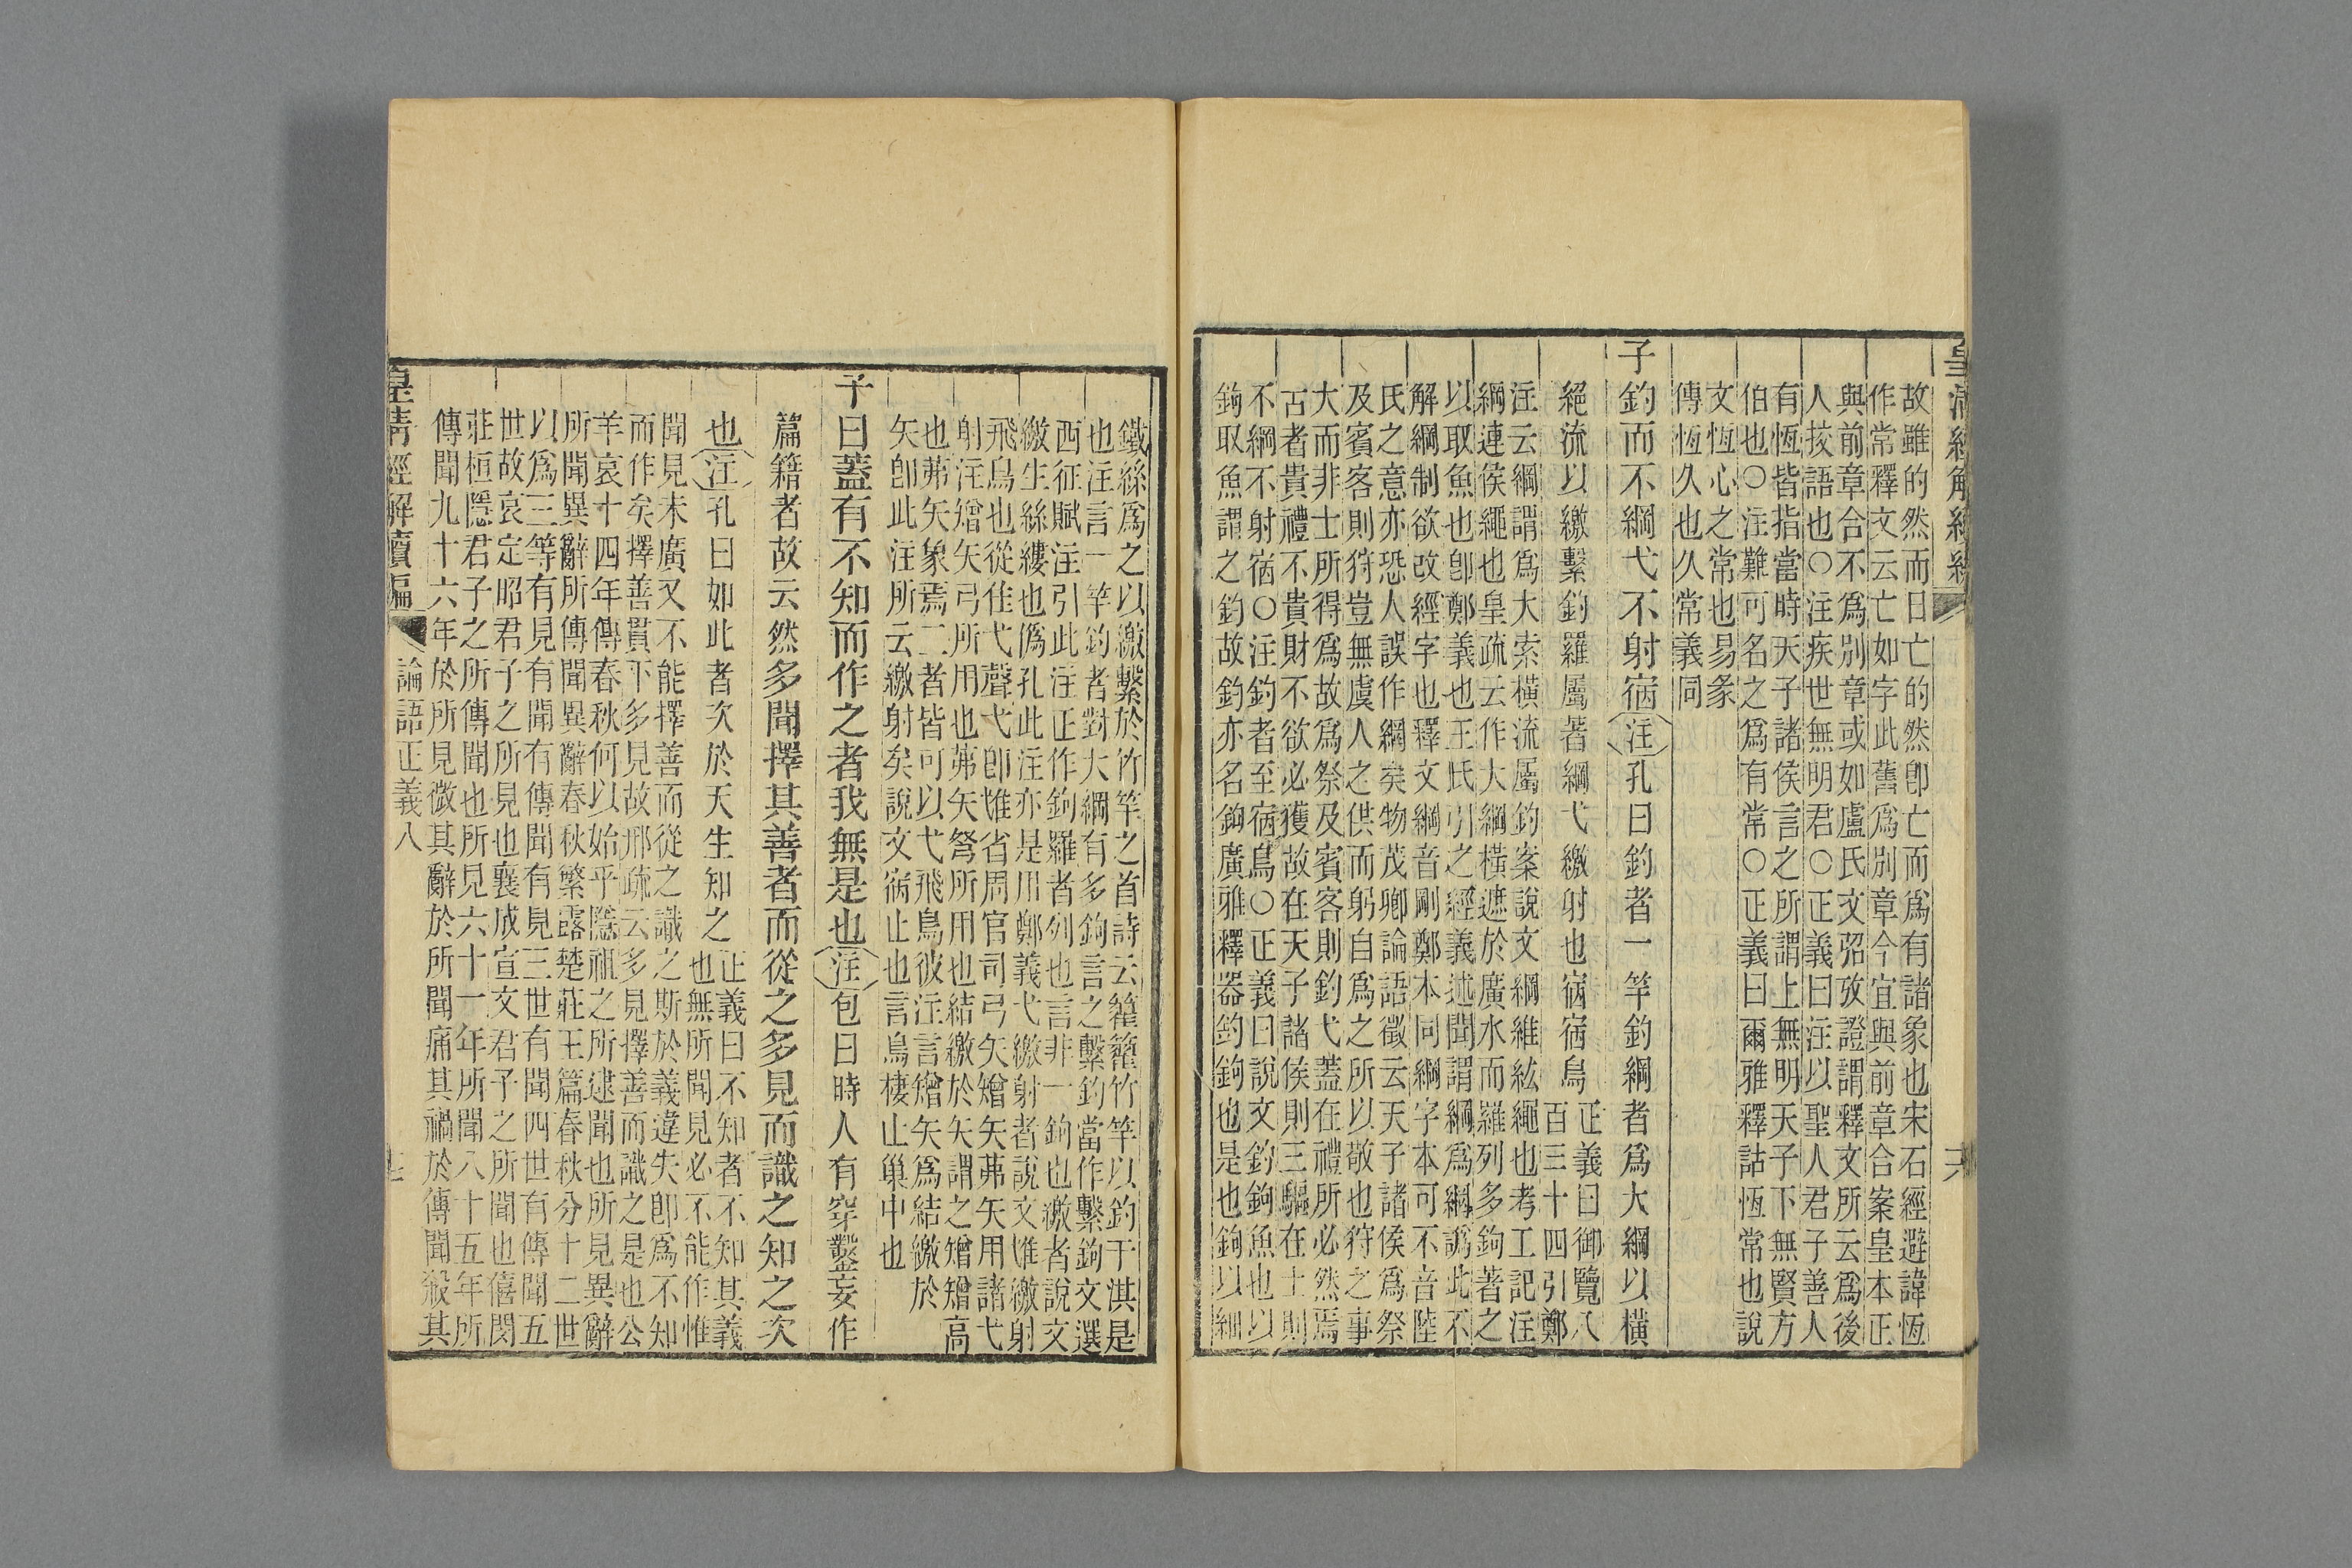 皇清經解續編
故雖的然而日亡的然卽亡而爲有諸象也宋石經避諱恆
作常釋文云亡如字此舊爲別章今宜與前章合案皇本正
與前章合不爲別章或如盧氏文弨攷證謂釋文所云爲後
人挍語也○注疾世無明君○正義曰注以聖人君子善人
有恆皆指當時天子諸侯言之所謂上無明天子下無賢方
伯也○注難可名之爲有常○正義曰爾雅釋詁恆常也說
文恆心之常也易彖
傳恆久也久常義同
子釣而不綱弋不射宿注孔曰釣者一竿釣綱者爲大綱以橫
絕流以繳繫釣羅屬著綱弋繳射也宿宿鳥
正義曰御覽八
百三十四引鄭
注云綱謂爲大索橫流屬釣案說文綱維紘繩也考工記注
綱連侯繩也皇疏云作大綱橫遮於廣水而羅列多鉤著之
以取魚也卽鄭義也王氏引之經義述聞謂綱爲網譌此不
解綱制欲改經字也釋文綱音剛鄭本同綱字本可不音陸
氏之意亦恐人誤作網矣物茂卿論語徵云天子諸侯爲祭
及賓客則狩豈無虞人之供而躬自爲之所以敬也狩之事
大而非士所得爲故爲祭及賓客則釣弋蓋在禮所必然焉
古者貴禮不貴財不欲必獲故在天子諸侯則三驅在士則
不綱不射宿○注釣者至宿鳥○正義曰說文釣鉤魚也以
鉤取魚謂之釣故釣亦名鉤廣雅釋器釣鉤也是也鉤以細
鐵絲爲之以繳繫於竹竿之首詩云籊籊竹竿以釣于淇是
也注言一竿釣者對大綱有多鉤言之繫釣當作繫鉤文選
西征賦注引此注正作鉤羅者列也言非一鉤也繳者說文
繳生絲縷也僞孔此注亦是用鄭義弋繳射者說文惟繳射
飛鳥也從隹弋聲弋卽惟省周官司弓矢矰矢茀矢用諸弋
射注矰矢弓所用也茀矢弩所用也結繳於矢謂之矰矰高
也茀矢象焉二者皆可以弋飛鳥彼注言矰矢爲結繳於
矢卽此注所云繳射矣說文宿止也言鳥棲止巢中也
子曰蓋有不知而作之者我無是也注包曰時人有穿鑿妄作
篇籍者故云然多聞擇其善者而從之多見而識之知之次
也注孔曰如此者次於天生知之
正義曰不知者不知其義
也無所聞見必不能作惟
聞見未廣又不能擇善而從之識之斯於義違失卽爲不知
而作矣擇善貫下多見故邢疏云多見擇善而識之是也公
羊哀十四年傳春秋何以始乎隱祖之所逮聞也所見異辭
所聞異辭所傳聞異辭春秋繁露楚莊王篇春秋分十二世
以爲三等有見有聞有傳聞有見三世有聞四世有傳聞五
世故哀定昭君子之所見也襄成宣文君子之所聞也僖閔
莊桓隱君子之所傳聞也所見六十一年所聞八十五年所
傳聞九十六年於所見微其辭於所聞痛其禍於傳聞殺其
皇清經解續編 論語正義八